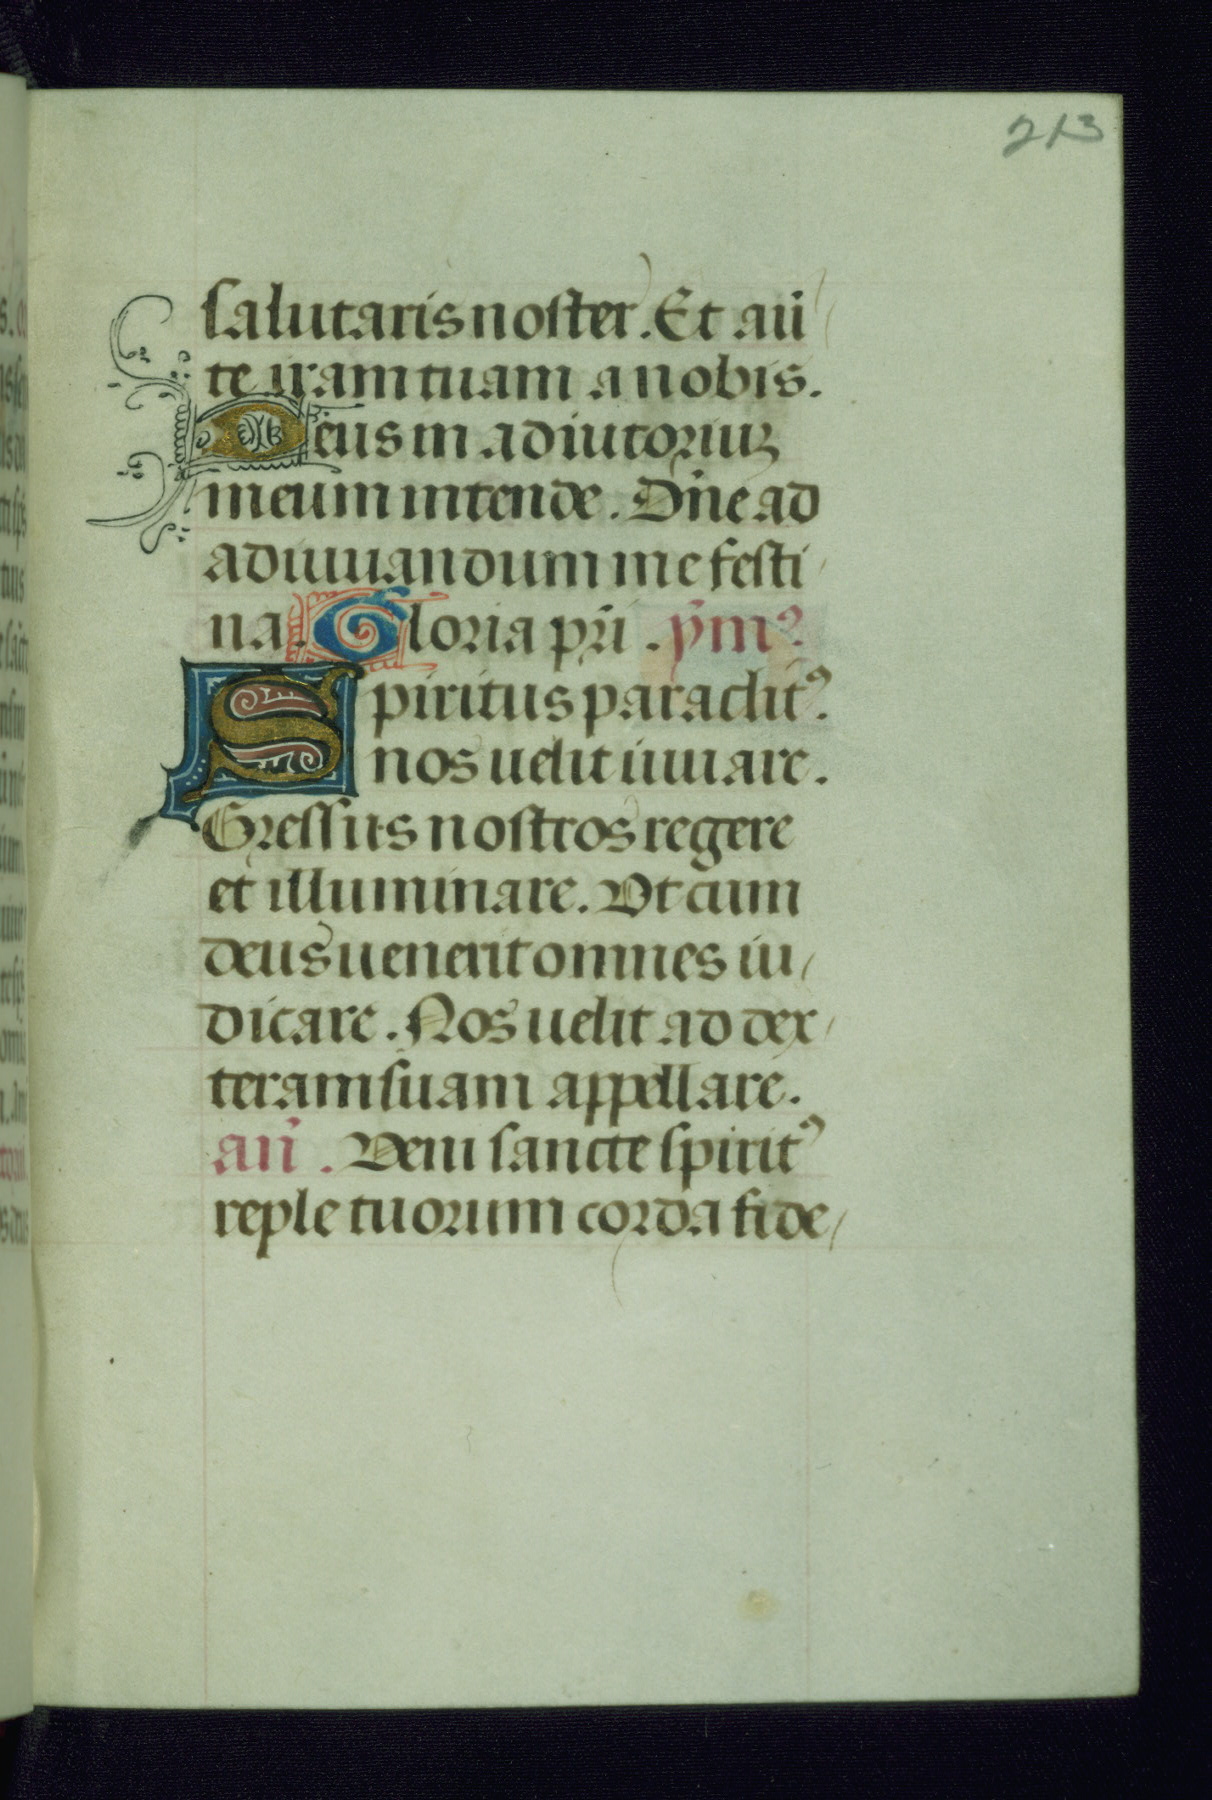 213
salutaris noster. Et aū
te iram tuam a nobis.
Deus in adiutoriuꝫ
meum intende. Dn̄e ad
adiuuandum me festi
na. Gloria pr̄i. ym̄ꝰ
Spiritus paraclitꝰ.
nos uelit iuuare.
Gressus nostros regere
et illuminare. Vt cum
deus uenerit omnes iu
dicare. Nos uelit ad dex
teram suam appellare.
an̄. Veni sancte spiritꝰ
reple tuorum corda fide